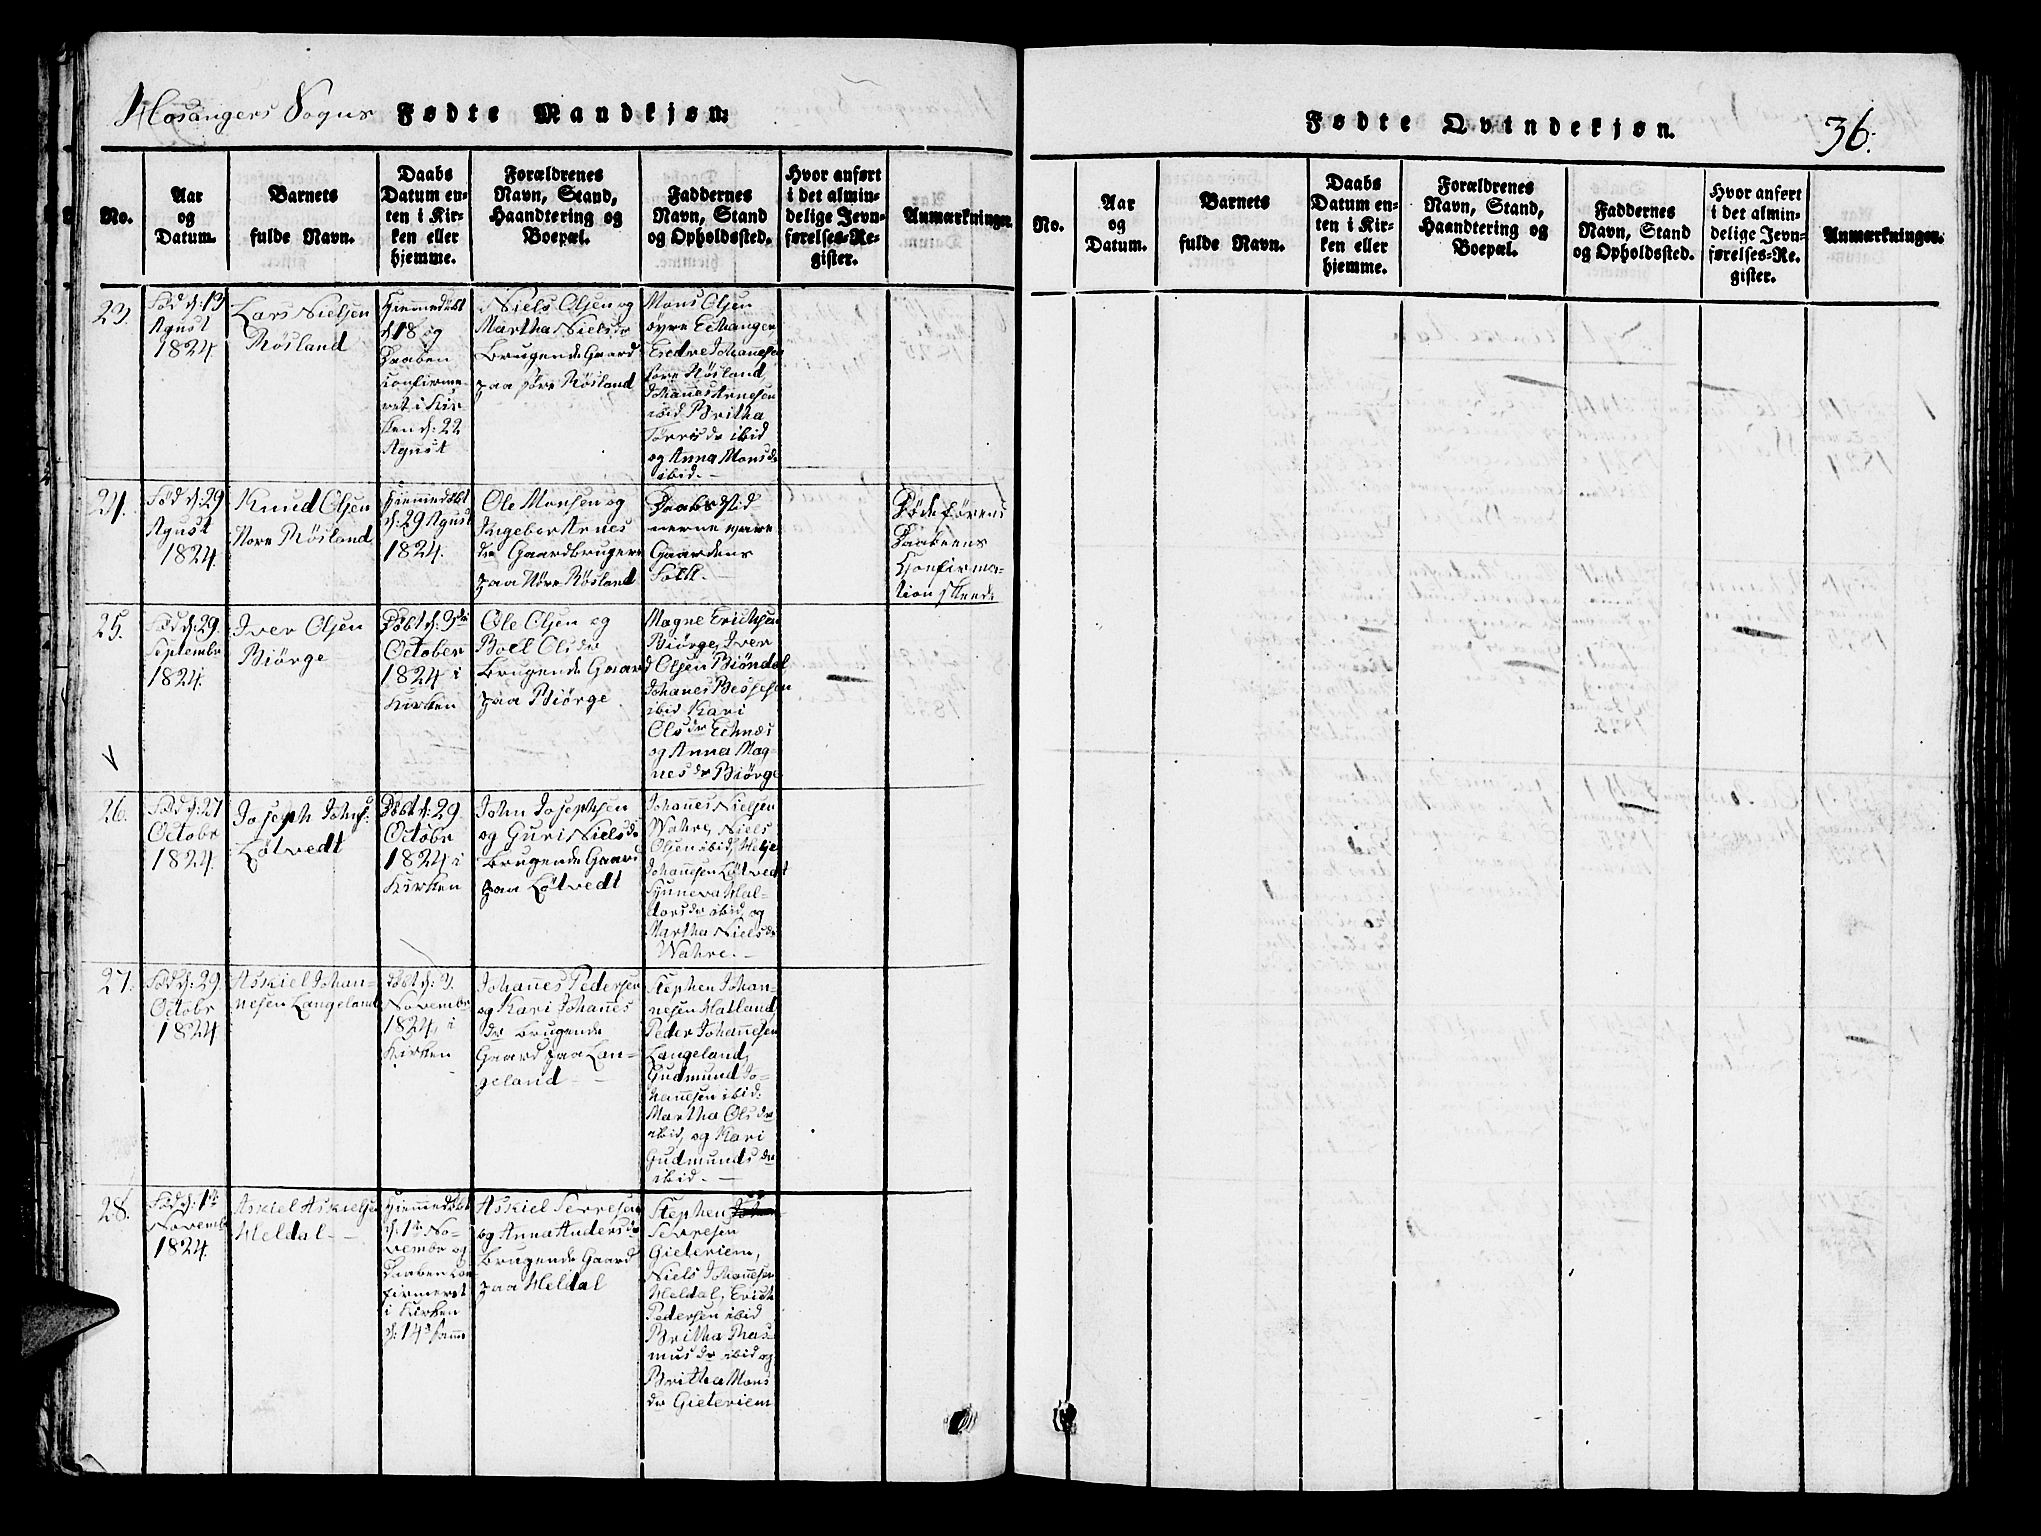 Hosangers Sogns Fødte Mandkjøn.
No.
Aar
og
Datum.
Barnets
fulde Navn.
Daabs
Datum en-
ten i Kir-
ken eller
hjemme.
Forældrenes
Navn, Stand,
Haandtering og
Boepæl.
Faddernes
Navn, Stand
og Opholdssted.
Hvor anført
i det almin-
delige Jevn-
førelses-Re-
gister.
Anmærkninger.
23.
Fød d: 13
Agust
1824.
Lars Nielsen
Røsland
Hiemmedøbt
d: 18 og
Daaben
confirme-
ret i Kir-
ken d: 22
Agust
Niels Olsen og
Martha Nielsdr
Brugende Gaard
paa søre Røsland
Mons Olsen
øyre Echanger
Endre Johannesen
søre Røsland,
Johanes Arnesen
ibid Britha
Tørrisdr ibid
og Anna Monsdr
ibid.
24.
Fød d: 29
Agust
1824.
Knud Olsen
Nore Røsland
Hiemmedøbt
d: 29 Agust
1824.
Ole Monsen og
Ingebor Arnes
dr Gaardbrugere
paa Nore Røsland
Daabs Vid-
nerne vare
Gaardens
Folk.
Døde førens
Daabens
Confirma-
tion skeede
25.
Fød d: 29.
Septembr
1824.
Iver Olsen
Biørge
Døbt d: 3die
October
1824 i
Kirken
Ole Olsen og
Boel Olsdr
Brugende Gaard
paa Biørge
Magne Erichsen
Biørge, Iver
Olsen Biøndal
Johanes Bessesen
ibid Kari
Olsdr Echnæs
og Anna Mag-
nesdr Biørge
26.
Fød d: 27
Octobr
1824.
Joseph Johns:
Løtvedt
Døbt d: 29
Octobr
1824 i
Kirken
John Josephsen
og Guri Nielsdr
Brugende Gaard
paa Løtvedt
Johannes Nielsen
Wahre, Niels
Olsen ibid, Helje
Johannesen Løtvedt
Synneva Hal-
dorsdr ibid, og
Martha Nielsdr
Wahre.
27.
Fød d: 29.
Octobr
1824
Askiel Johan-
nesen Langeland
Døbt d: 3.
Novembr
1824, i
Kirken
Johannes Pedersen
og Kari Johanes
dr Brugende
Gaard paa Lan-
geland
Stephen Johan-
nesen Hatland,
Peder Johannesen
Langeland,
Gudmund Jo-
hannesen ibid:
Martha Olsdr
ibid, og Kari
Gudmundsdr
ibid.
28.
Fød d: 1te
Novembr
1824.
Askiel Askielsen
Heldal
Hiemmedøbt
d: 1te No-
vembr og
Daaben Con
firmeret
i Kirken
d: 14de samme
Askiel Ferresen
og Anna Andersdr
Brugende Gaard
paa Heldal
Stephen
Ferresen
Gieteriem,
Niels Johannesen
Heldal, Erich
Pedersen ibid
Britha Ras-
musdr ibid og
Britha Mons
dr Gieteriem
Fødte Qvindekjøn.
36.
No.
Aar
og
Datum.
Barnets
fulde Navn.
Daabs
Datum en-
ten i Kir-
ken eller
hjemme.
Forældrenes
Navn, Stand,
Haandtering og
Boepæl.
Faddernes
Navn, Stand
og Opholdssted.
Hvor anført
i det almin-
delige Jevn-
førelses-Re-
gister.
Anmærkninger.